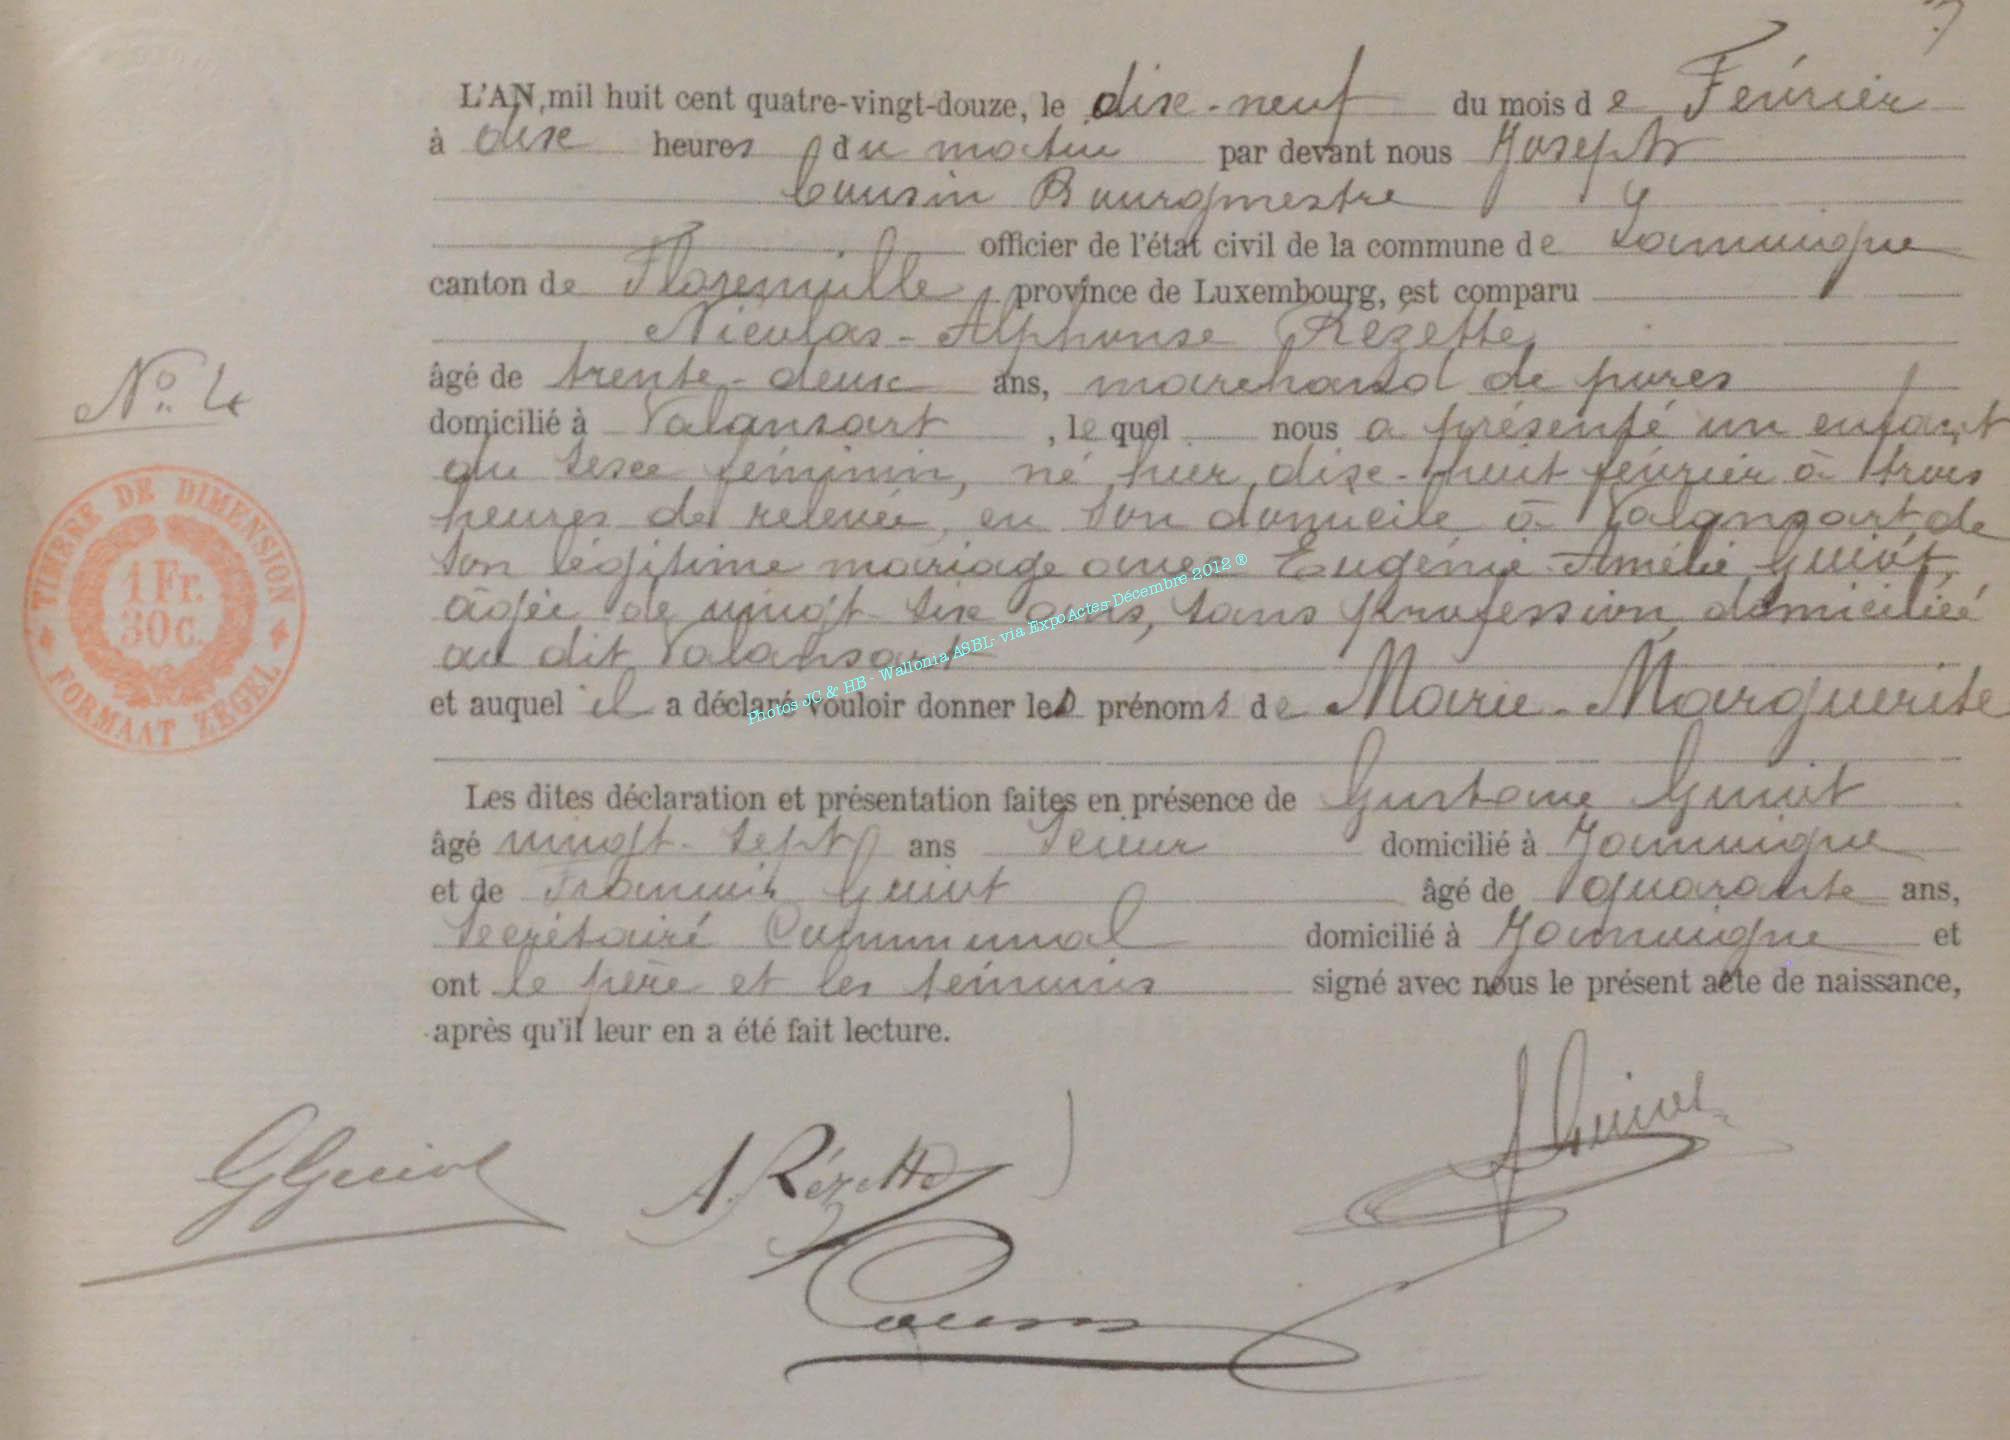 7
L'AN mil huit cent quatre-vingt-douze, le dix-neuf du mois de Février
à dix heures du matin par devant nous Joseph
Cousin Bourgmestre
officier de l'état civil de la commune de Jamoigne
canton de Florenville, province de Luxembourg, est comparu
Nicolas-Alphonse Rézette,
âgé de trente-deux ans, marchand de porcs
domicilié à Valansart, lequel nous a présenté un enfant
du sexe féminin, né hier, dix-huit février à trois
heures de relevée, en son domicile à Valansart de
son légitime mariage avec Eugénie Amélie Guiot,
âgée de vingt-six ans, sans profession, domiciliée
au dit Valansart
et auquel il a déclaré vouloir donner les prénoms de Marie-Marguerite
Les dites déclaration et présentation faites en présence de Gustave Guiot
âgé vingt-sept ans domicilié à Jamoigne
et de François Guiot âgé de quarante ans,
secrétaire Communal domicilié à Jamoigne et
ont le père et les témoins signé avec nous le présent acte de naissance,
après qu'il leur en a été fait lecture.
No. 4
TIMBRE DE DIMENSION
1 Fr.
30 c.
FORMAAT ZEGEL
Photos JC & HB - Wallonia ASBL- via ExpoActes-Décembre 2012 ®
GGuiot
A. Rézette
Guiot
Cousin